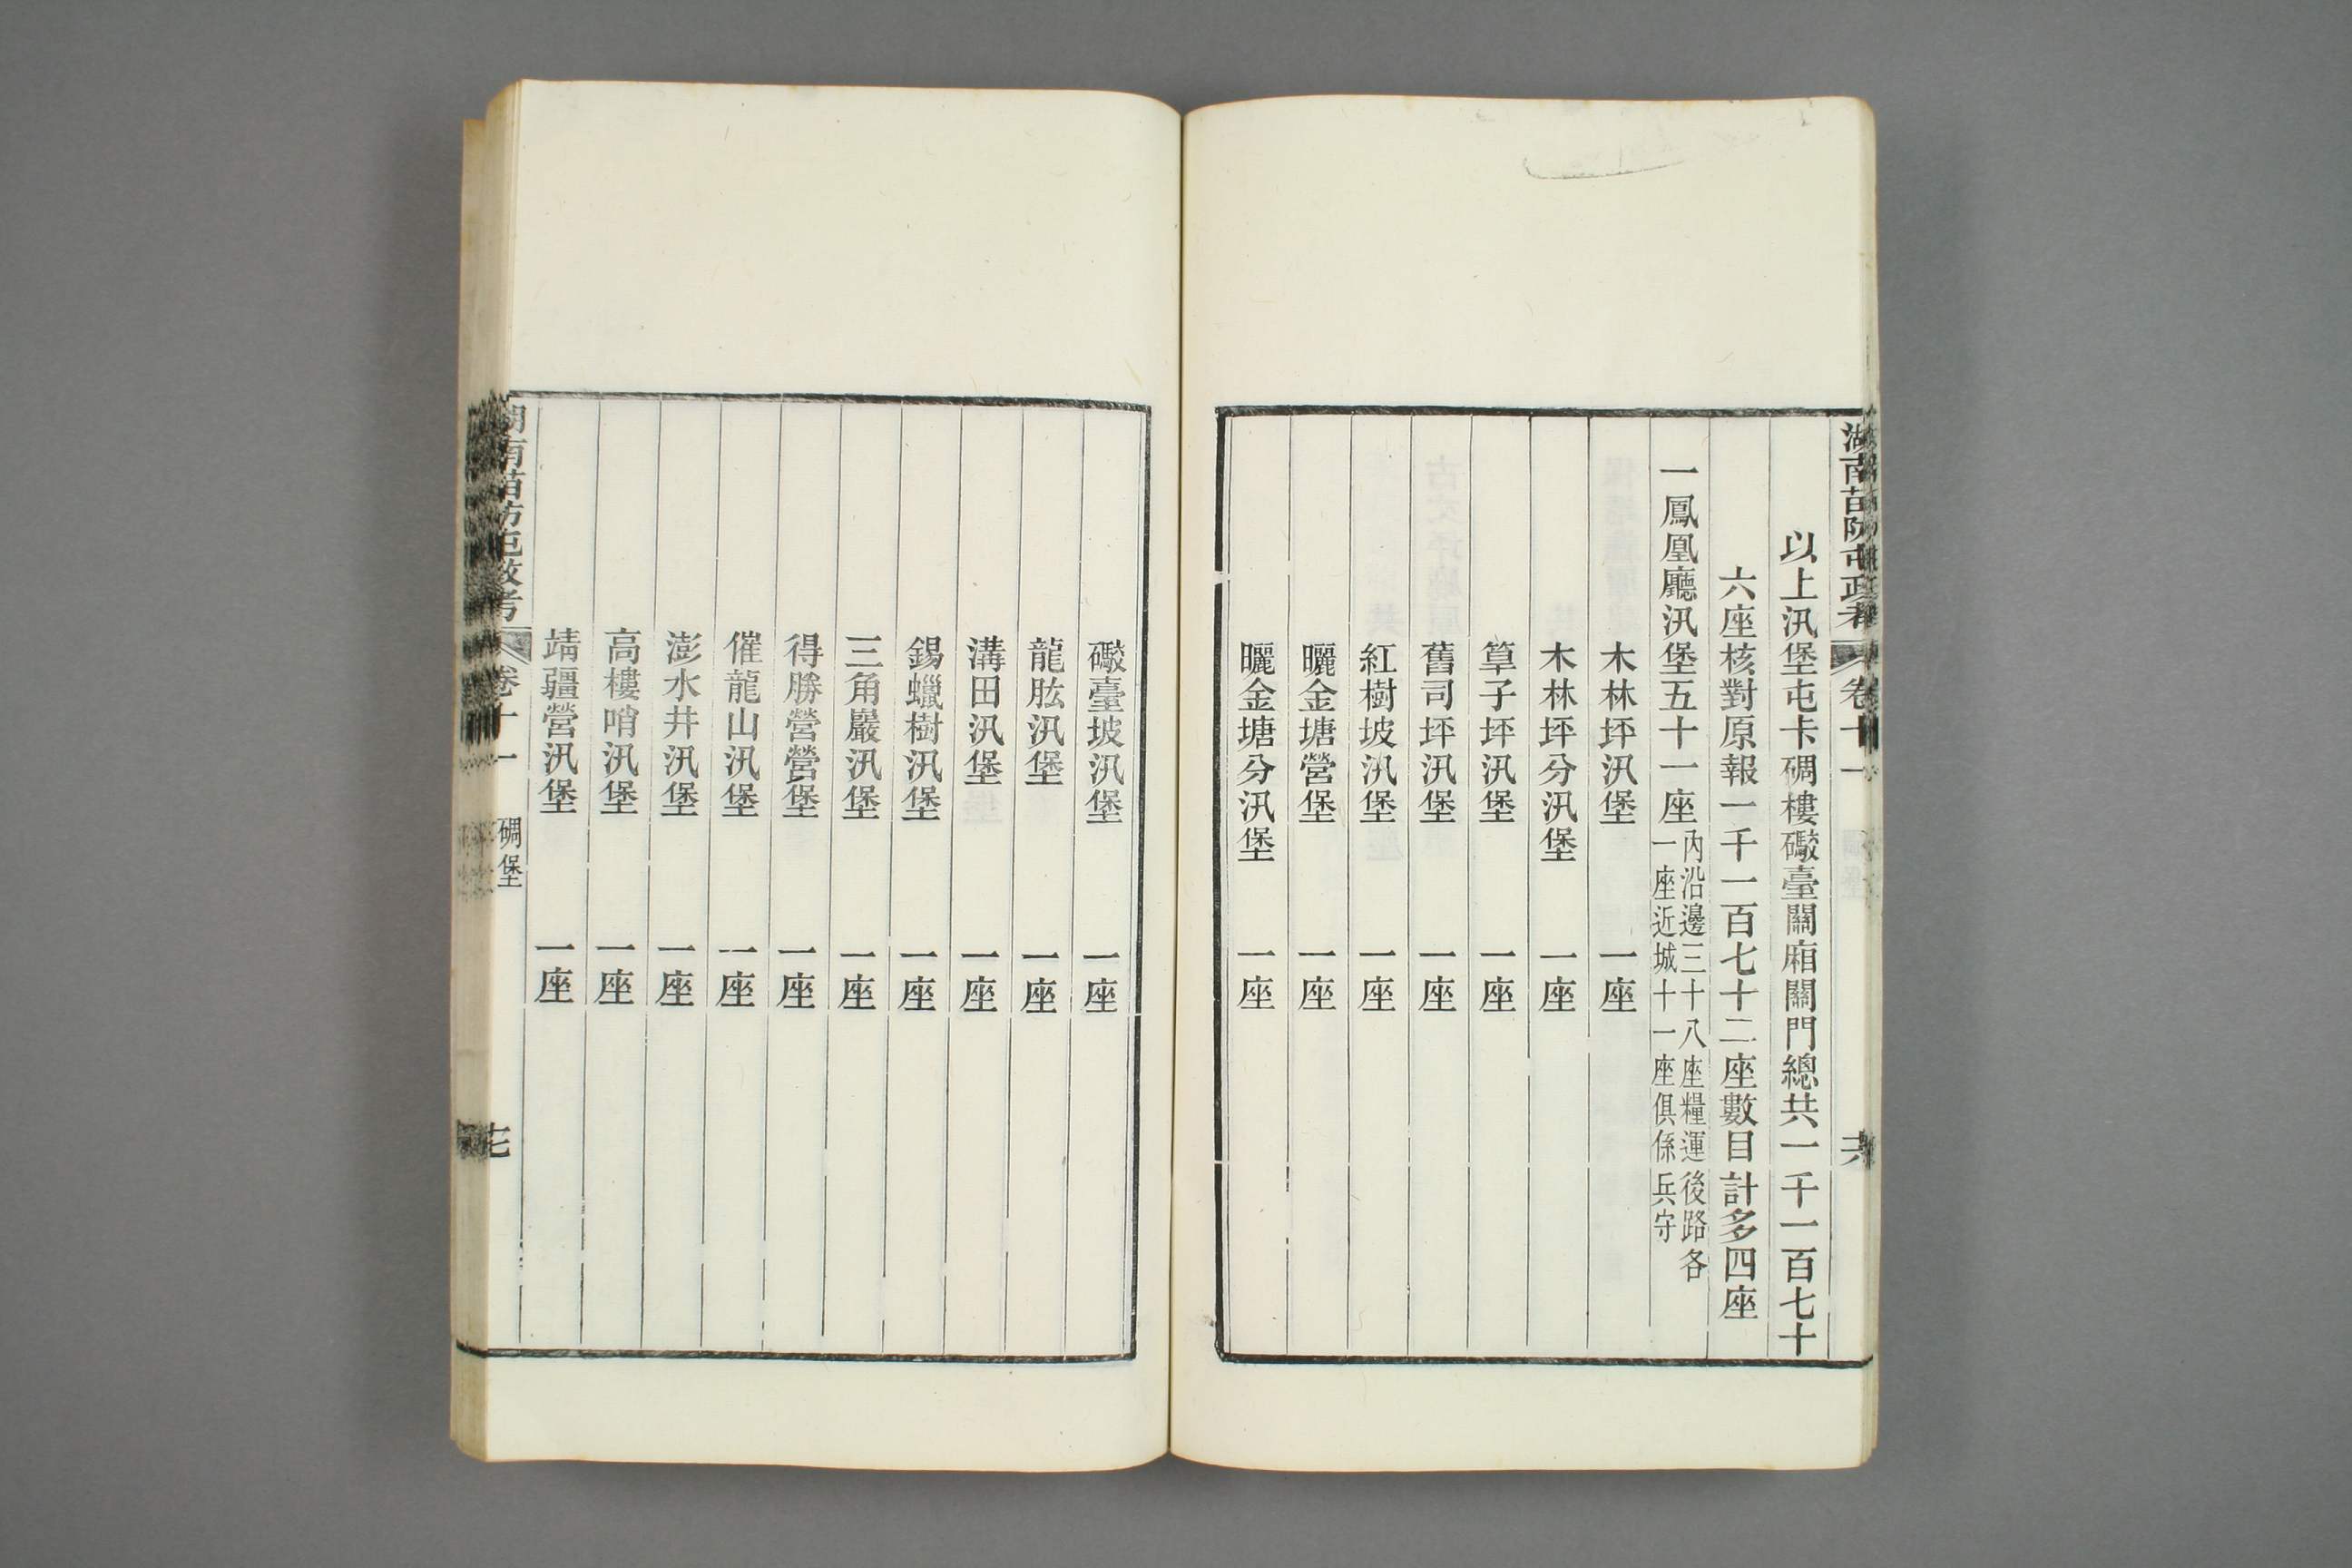 湖南苗防屯政考 卷十一 共
以上汛堡屯卡碉樓礮臺關廂關門總共一千一百七十
六座核對原報一千一百七十二座數目計多四座
一鳳凰廳汛堡五十一座內沿邊三十八座糧運後路各
一座近城十一座俱係兵守
木林坪汛堡 一座
木林坪分汛堡 一座
筸子坪汛堡 一座
舊司坪汛堡 一座
紅樹坡汛堡 一座
曬金塘營堡 一座
曬金塘分汛堡 一座
礮臺坡汛堡 一座
龍肱汛堡 一座
溝田汛堡 一座
錫蠟樹汛堡 一座
三角巖汛堡 一座
得勝營營堡 一座
催龍山汛堡 一座
澎水井汛堡 一座
高樓哨汛堡 一座
靖疆營汛堡 一座
湖南苗防屯政考 卷十一 碉堡